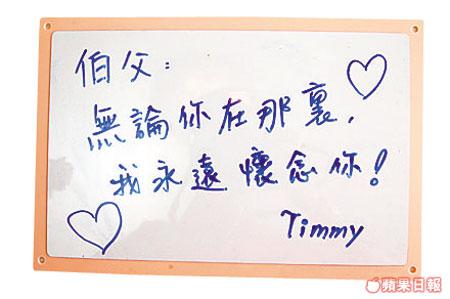 伯父：
無論你在那裏，
我永遠懷念你！
Timmy
蘋果日報